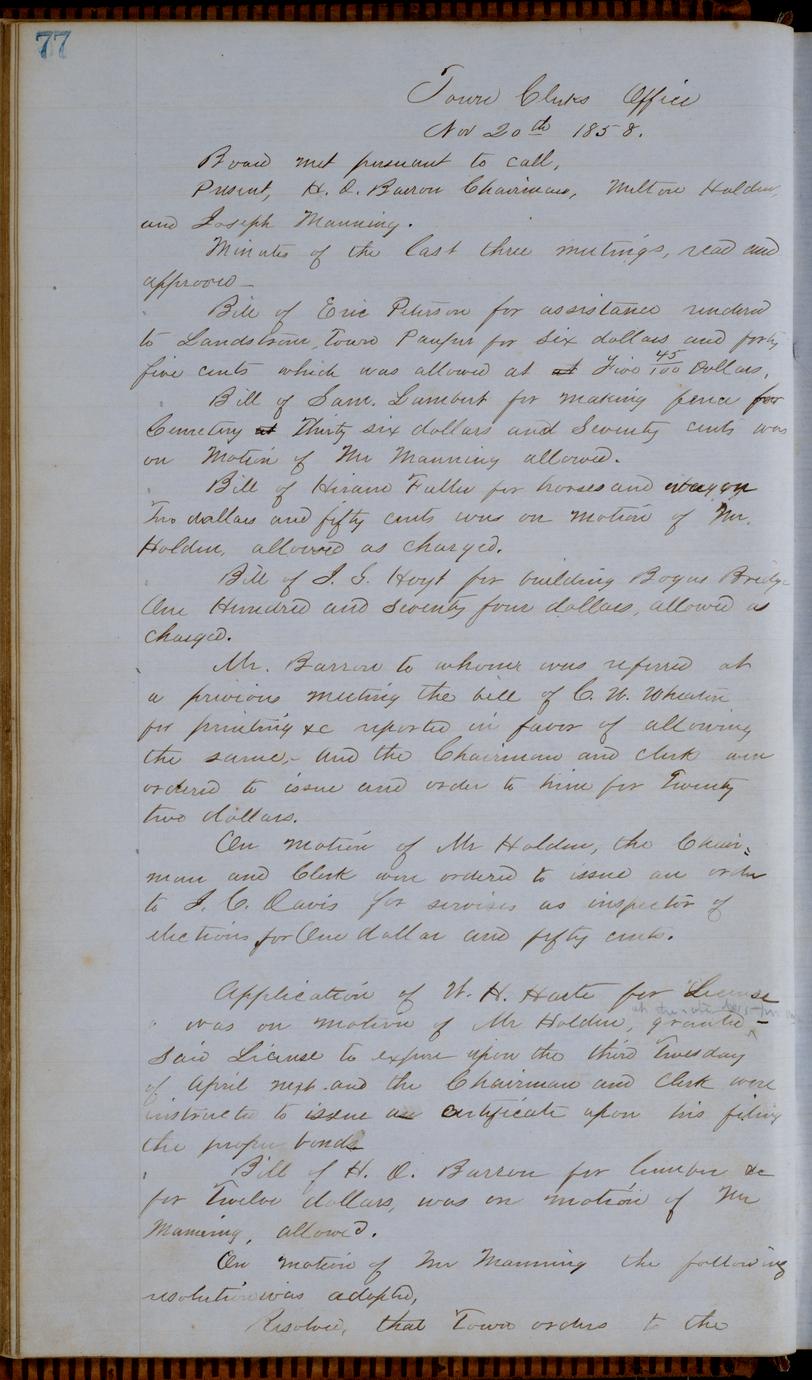 77
Town Clerks Office
Nov 20th 1858.
Board met pursuant to call,
Present, H. O. Barron Chairman, Milton Holden,
and Joseph Manning.
Minutes of the last three meetings, read and
approved –
Bill of Eric Peterson for assistance rendered
to Landstrom, Town Pauper for six dollars and forty
five cents which was allowed at at Five 45/100 Dollars.
Bill of Sam. Lambert for making fence for
Cemetery at Thirty six dollars and Seventy cents was
on Motion of Mr Manning allowed.
Bill of Hiram Fuller for horses and wagon
Two dollars and fifty cents was on motion of Mr.
Holden, allowed as charged.
Bill of J. G. Hoyt for building Bogus Bridge
One Hundred and Seventy four dollars, allowed as
charged.
Mr. Barron to whome was referred at
a previous meeting the bill of C. W. Wheaton
for printing &c reported in favor of allowing
the same,- and the Chairman and clerk were
ordered to issue and order to him for Twenty
two dollars.
On motion of Mr Holden, the Chair=
man and Clerk were ordered to issue an order
to J. C. Davis for servises as inspector of
elections for One dollar and fifty cents.
Application of W. H. Harte for License
at the rate
was on motion of Mr Holden, granted –
Said License to expire upon the third Tuesday
of April next and the Chairman and Clerk were
instructed to issue an certificate upon his filing
the proper bonds
Bill of H. O. Barron for lumber &c
for Twelve dollars, was on motion of Mr
Manning, allowed.
On motion of Mr Manning the following
resolution was adopted,
Resolved, that Town orders to the